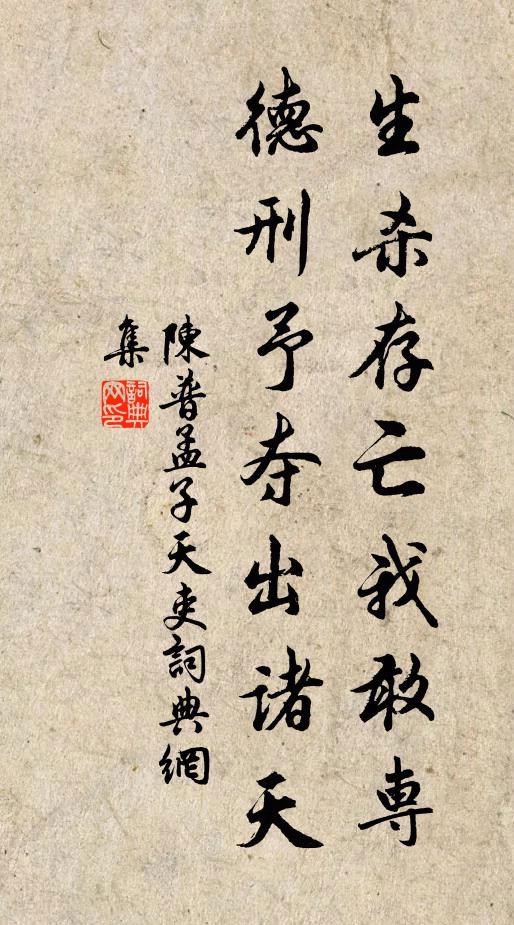 生杀存亡我敢専
德刑予夺出诸天
陳普孟子天吏詞典網
集
詞典
网印